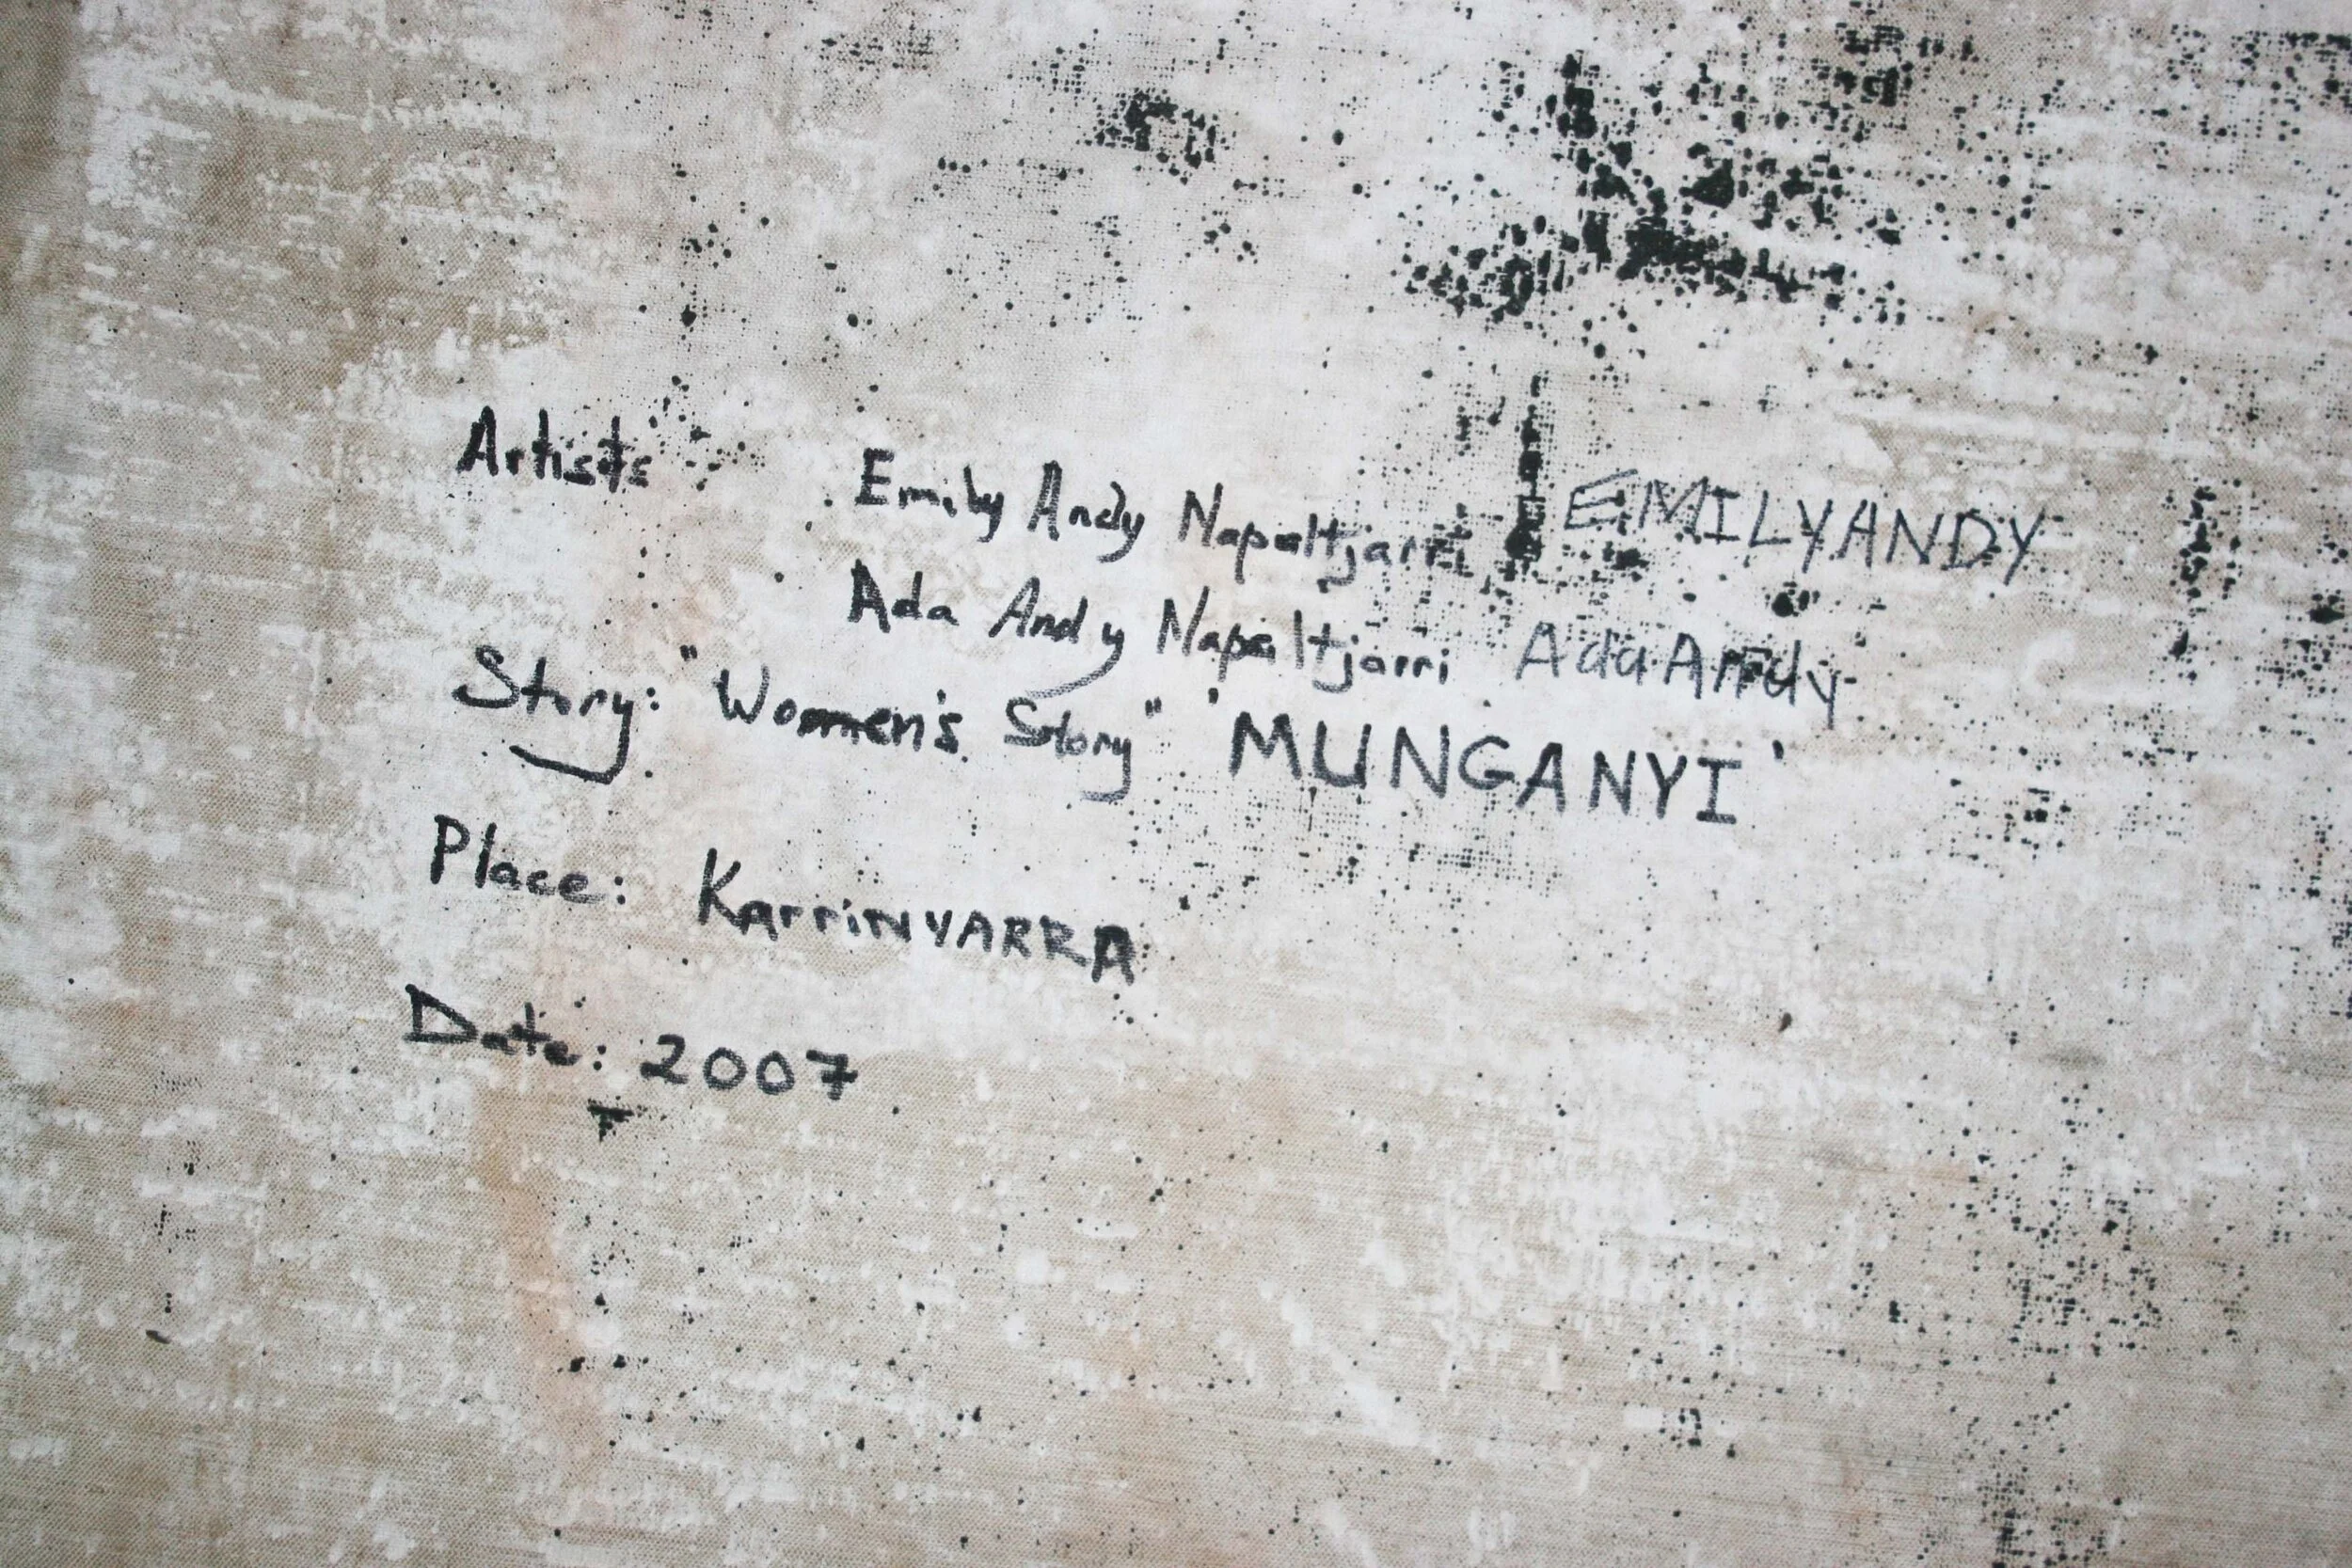 Artists Emily Andy Napaltjarri EMILYANDY
Ada Andy Napaltjarri Ada Andy
Story: "Women's Story" 'MUNGANYI'
Place: KarriNYARRA
Date: 2007